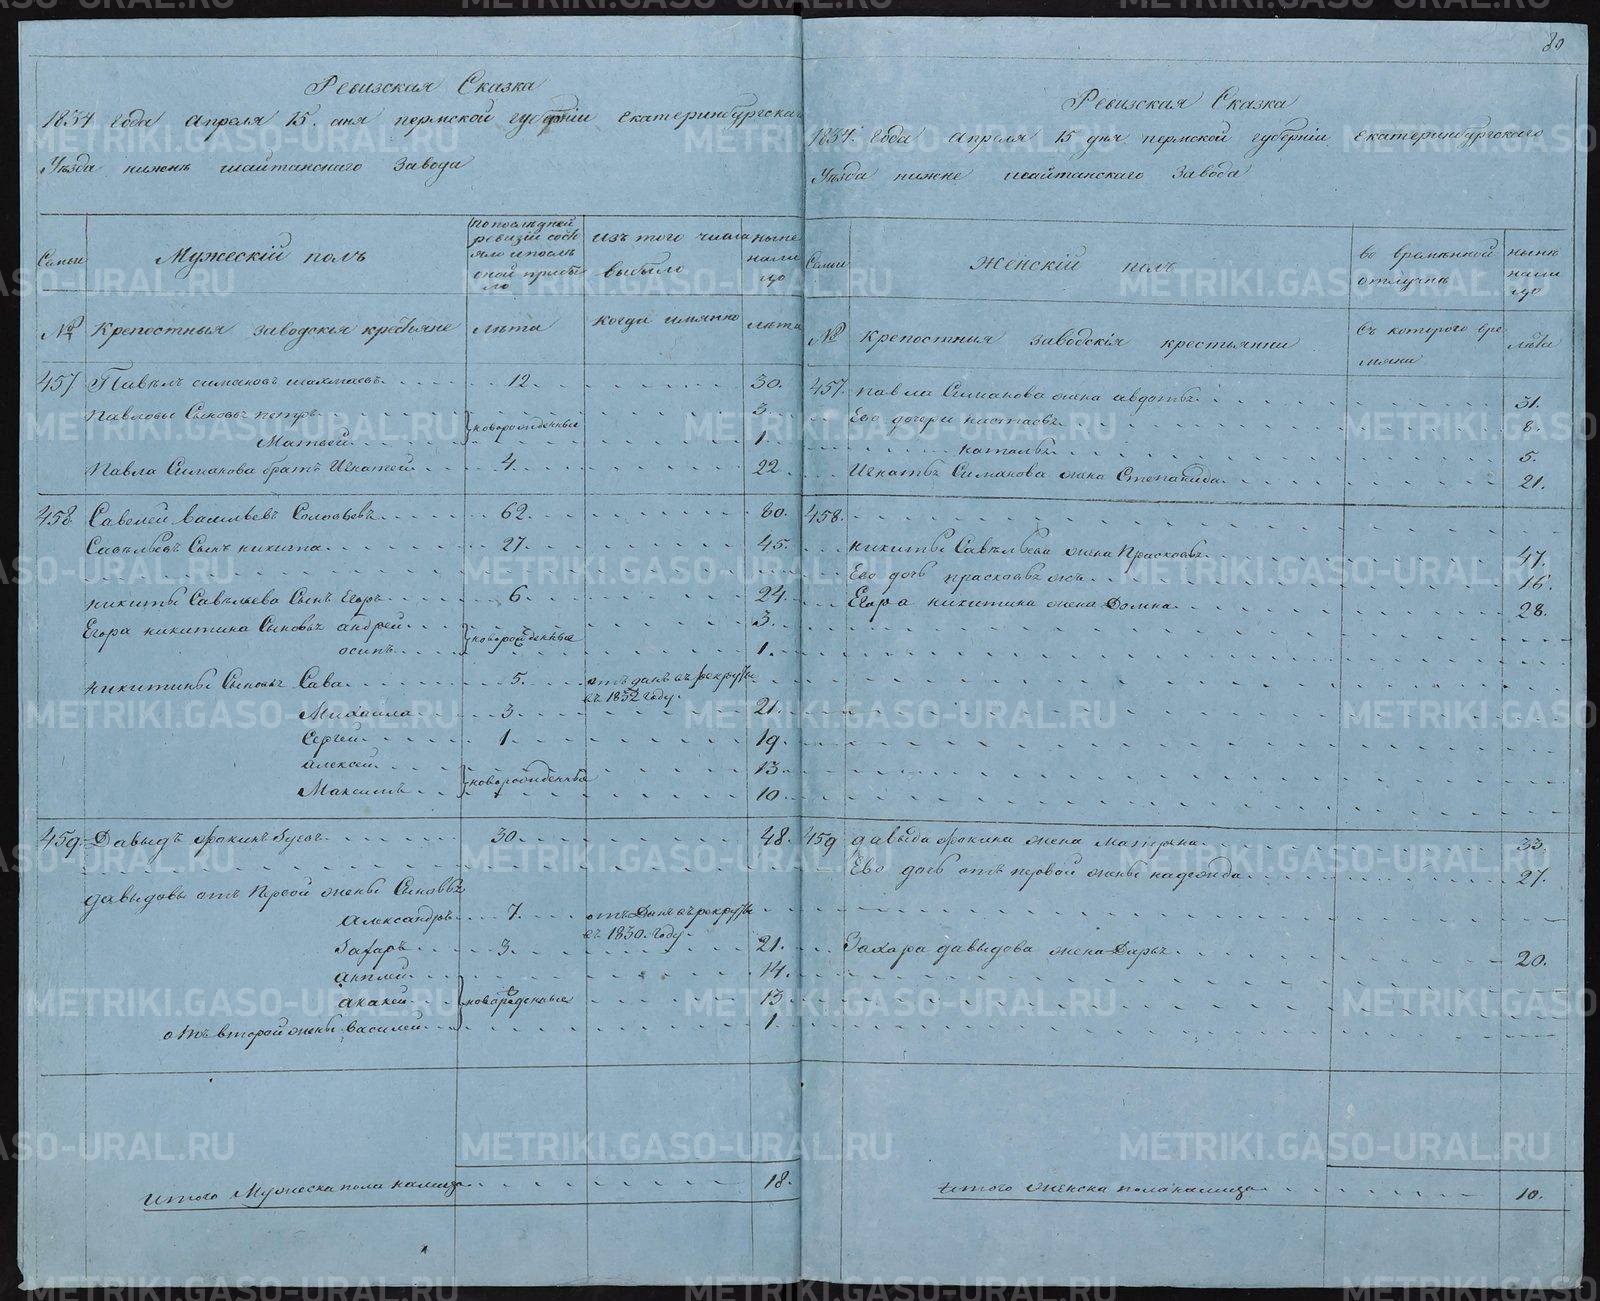 80
Ревизская Сказка
1834 года апреля 15. дня пермской губерніи Екатеринбургскаго
Уѣзда нижнѣ шайтанскаго Завода
Семьи
Мужескій полъ
по последней ревизіи состояло и после оной прибыло
изъ того числа выбыло
ныне на лицо
№
Крепостныя заводскія крестьяне
лѣта
когда имянно
лѣта
457 Павелъ симановъ 12. 30.
Павловы Сыновья петръ 3.
новорожденные
Матвей 1.
Павла Симанова братъ Игнатей 4. 22
458 Савелей васильевъ Соловьевъ 62. 80.
Савельевъ Сынъ никита 27. 45.
никиты Савельева Сынъ Егоръ 6. 24.
Егора никитина Сыновья андрей 3.
новорожденные
осипъ 1.
никитины Сыновья Сава 5. отъ данъ въ рекруты
въ 1832 году.
Михайла 3. 21.
Сергей 1. 19.
алексей 13.
новорожденные
Максимъ 10.
459. Давыдъ фокинъ 30. 48.
давыдовы отъ первой жены Сыновья
Александръ 7. отъ Данъ въ рекруты
въ 1830. году.
Захаръ 3. 21.
14.
акакей новорожденные 13
отъ второй жены василей 1.
итого Мужеска пола налицо 18.
Ревизская Сказка
1834. года апреля 15 дня пермской губерніи Екатеринбургскаго
Уѣзда нижне шайтанскаго Завода
Семьи
Женскій полъ
во временной отлучкѣ
нынѣ на лицо
№
крепостныя заводскія крестьянки
съ котораго времяни
лѣта
457. павла Симанова жена авдотья 31.
Ево дочери настасья 8.
наталья 5.
Игнатья Симанова жена Степанида 21.
458.
никиты Савѣльева жена Прасковья 47.
Ево дочь прасковья жъ 16.
Егора никитина жена Домна 28.
459 давыда фокина жена матрена 33.
Ево дочь отъ первой жены надежда 27.
Захара давыдова жена Дарья 20.
итого женска пола налицо 10.
METRIKI.GASO-URAL.RU